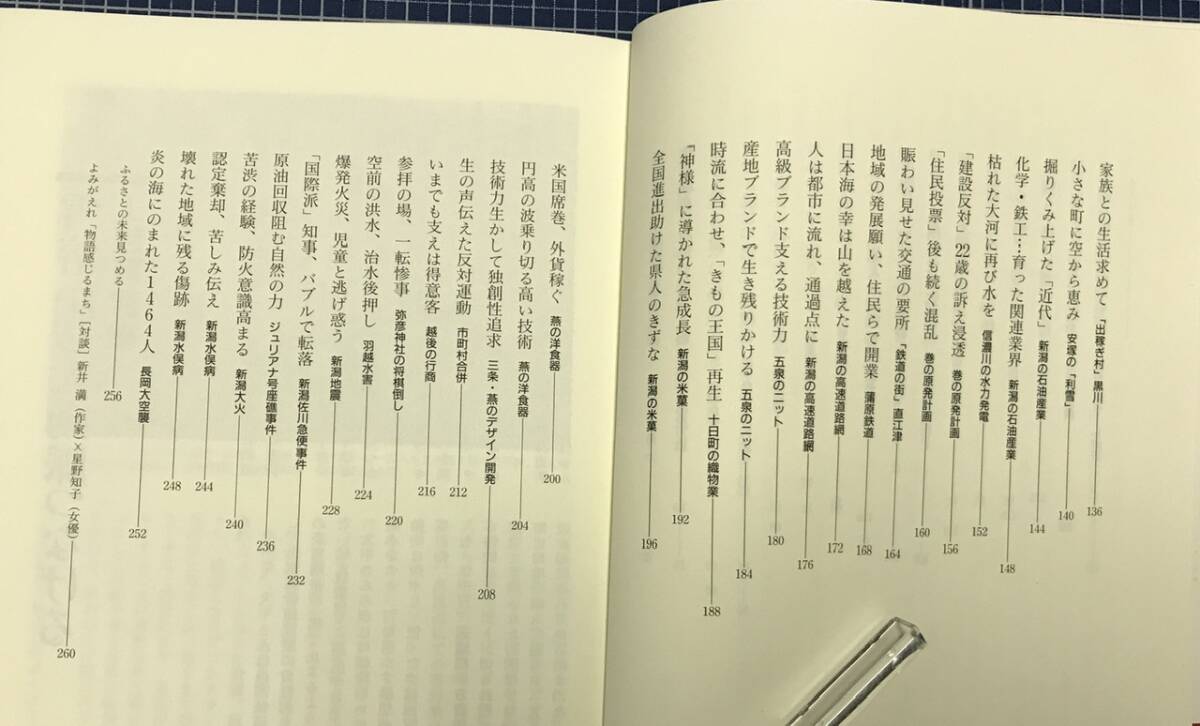 家族との生活求めて 「出稼ぎ村」黒川 136
小さな町に空から恵み 安塚の「利雪」 140
掘りくみ上げた「近代」 新潟の石油産業 144
化学・鉄工…育った関連業界 新潟の石油産業 148
枯れた大河に再び水を 信濃川の水力発電 152
「建設反対」22歳の訴え浸透 巻の原発計画 156
「住民投票」後も続く混乱 巻の原発計画 160
賑わい見せた交通の要所 「鉄道の街」直江津 164
地域の発展願い、住民らで開業 蒲原鉄道 168
日本海の幸は山を越えた 新潟の高速道路網 172
人は都市に流れ、通過点に 新潟の高速道路網 176
高級ブランド支える技術力 五泉のニット 180
産地ブランドで生き残りかける 五泉のニット 184
時流に合わせ、「きもの王国」再生 十日町の織物業 188
「神様」に導かれた急成長 新潟の米菓 192
全国進出助けた県人のきずな 新潟の米菓 196
米国席巻、外貨稼ぐ 燕の洋食器 200
円高の波乗り切る高い技術 燕の洋食器 204
技術力生かして独創性追求 三条・燕のデザイン開発 208
生の声伝えた反対運動 市町村合併 212
いまでも支えは得意客 越後の行商 216
参拝の場、一転惨事 弥彦神社の将棋倒し 220
空前の洪水、治水後押し 羽越水害 224
爆発火災、児童と逃げ惑う 新潟地震 228
「国際派」知事、バブルで転落 新潟佐川急便事件 232
原油回収阻む自然の力 ジュリアナ号座礁事件 236
苦渋の経験、防火意識高まる 新潟大火 240
認定棄却、苦しみ伝え 新潟水俣病 244
壊れた地域に残る傷跡 新潟水俣病 248
炎の海にのまれた1464人 長岡大空襲 252
ふるさとの未来見つめる 256
よみがえれ「物語感じるまち」［対談］新井 満（作家）×星野知子（女優） 260